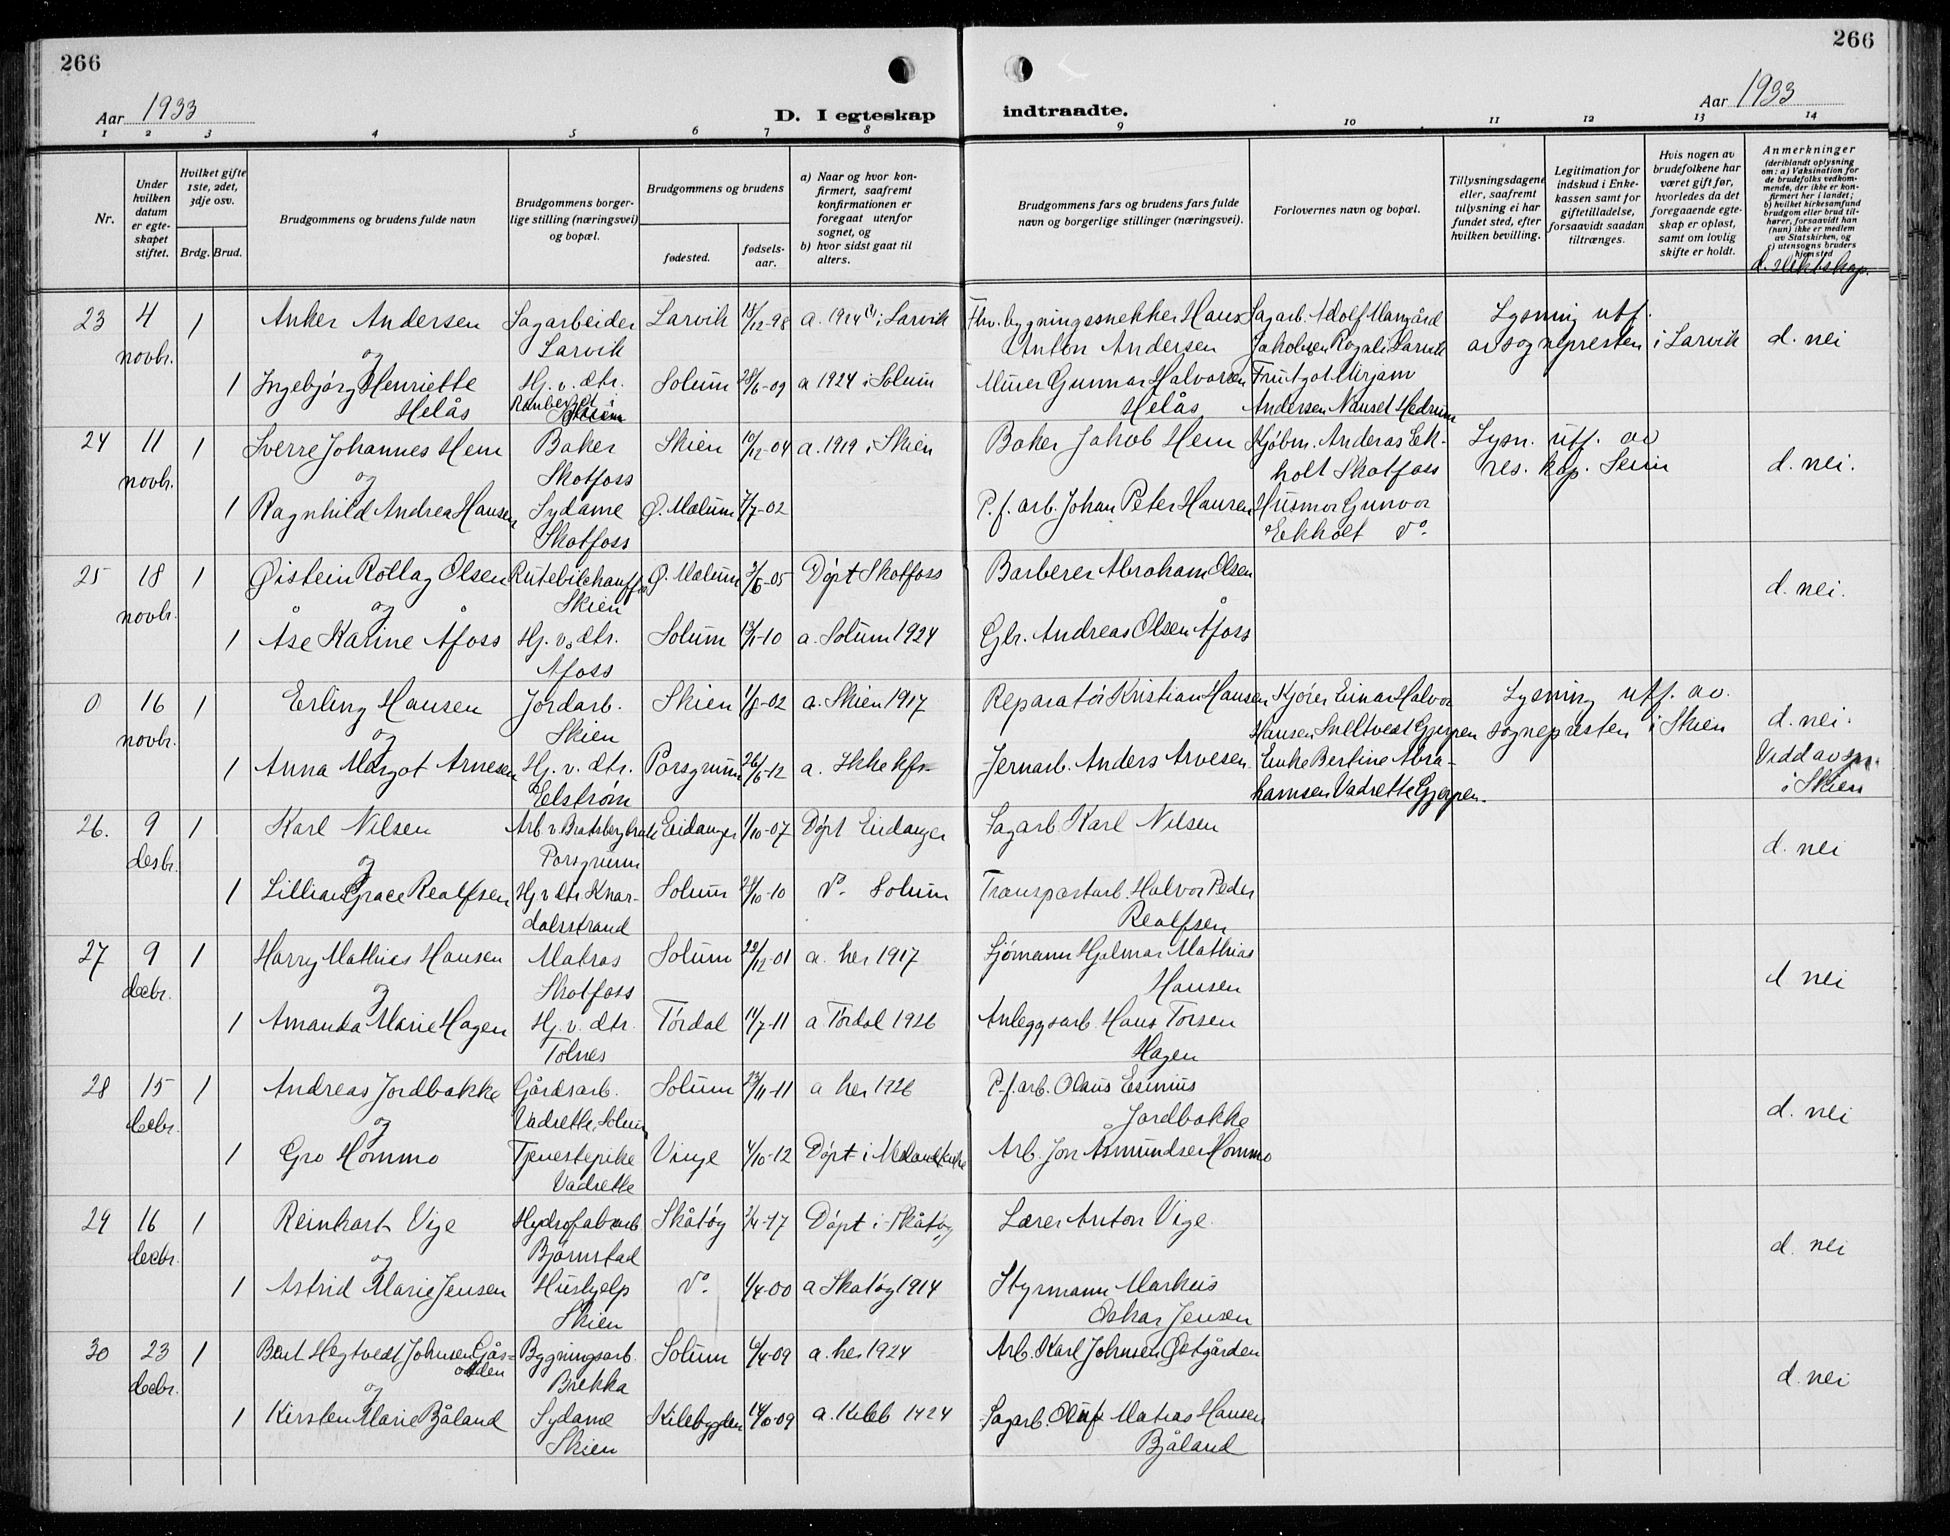 266
266
Aar 1933
D. I egteskap
indtraadte.
Aar 1933
1 2 3 4 5 6 7 8 9 10 11 12 13 14
Nr.
Under hvilken datum er egteskapet stiftet.
Hvilket gifte 1ste, 2det, 3dje osv.
Brdg. Brud.
Brudgommens og brudens fulde navn
Brudgommens borgerlige stilling (næringsvei) og bopæl.
Brudgommens og brudens
fødested.
fødsels-aar.
a) Naar og hvor konfirmert, saafremt konfirmationen er foregaat utenfor sognet, og
b) hvor sidst gaat til alters.
Brudgommens fars og brudens fars fulde navn og borgerlige stillinger (næringsvei).
Forlovernes navn og bopæl.
Tillysningsdagene eller, saafremt tillysning ei har fundet sted, efter hvilken bevilling.
Legitimation for indskud i Enkekassen samt for giftetilladelse, forsaavidt saadan tiltrænges.
Hvis nogen av brudefolkene har været gift før, hvorledes da det foregaaende egteskap er opløst, samt om lovlig skifte er holdt.
Anmerkninger
(deriblandt oplysning om: a) Vaksination for de brudefolks vedkommende, der ikke er konfirmert her i landet; b) hvilket kirkesamfund brudgom eller brud tilhører, forsaavidt han (hun) ikke er medlem av Statskirken, og c) utensogns bruders hjemsted
d. slektskap.
23 4 1 Anker Andersen Sagarbeider Larvik 18/12-98 a. 1914 i Larvik Fhv. bygningssnekker Hans Sagarb. Adolf Lysning utf.
novbr. og Larvik Anton Andersen Jakobsen Larvik av sognepresten i Larvik d. nei
1 Ingebjørg Henriette Hj. v. dtr. Solum 28/6-09 a 1924 i Solum Murer Gunnar Halvorsen Mirjam
Helås Helås Andersen Nanset Hedrum
24 11 1 Sverre Johannes Hem Baker Skien 10/12-04 a. 1919 i Skien Baker Jakob Hem Kjøbm. Anderas Ek- Lysn. utf. av
novbr. og Skotfoss holt Skotfoss res. kap. d. nei.
1 Ragnhild Andrea Hansen Sydame Ø. Mælum 7/7-02 P. f. arb. Johan Peter Hansen Husmor Gunvor
Skotfoss Ekholt do.
25 18 1 Øistein Rollag Olsen Rutebilchauffør Ø. Mælum 3/6-05 Døpt Skotfoss Barberer Abraham Olsen
novbr. og Skien d. nei.
1 Åse Karine Åfoss Hj. v. dtr. Solum 13/1-10 a. Solum 1924 Gbr. Andreas Olsen Åfoss
Åfoss
0 16 1 Erling Hansen Jordarb. Skien 1/8-02 a. Skien 1917 Reparatør Kristian Hansen Kjører Einar Halvor Lysning utf. av.
novbr. og Skien Hansen Gjerpen sognepresten i Skien d. nei.
1 Anna Margot Arnesen Hj. v. dtr. Porsgrunn 26/6-12 a. Ikke kfr. Jernarb. Anders Arvesen Enke Bertine Abra- Viedd av spr.
Elstrøm hamsen Vadrette Gjerpen. i Skien
26. 9 1 Karl Nilsen Arb v. Bratsbergbrak Eidanger 1/10-07 Døpt Eidanger Sagarb Karl Nilsen
desbr. og Porsgrunn d. nei
1 Lillian Grace Realfsen Hj v dtr Knar- Solum 28/10-10 do. Solum Transportarb. Halvor Peder
dalsstrand Realfsen
27 9 1 Harry Mathias Hansen Matros Solum 22/12-01 a. her 1917 Sjømann Hjalmar Mathias
decbr. og Skotfoss Hansen d nei
1 Amanda Marie Hagen Hj. v. dtr. Tørdal 11/7-11 a Tørdal 1926 Anleggsarb. Hans Torsen
Tolnes Hagen
28 15 1 Andreas Jordbakke Gårdsarb. Solum 23/11-11 a her 1926 P-f. arb. Olaus
decbr. og Vadrette, Solum Jordbakke d. nei
1 Gro Hommo Tjenestepike Vinje 4/10-12 Døpt i Arb. Jon Åsmundsen Hommo
Vadrette
29 16 1 Reinhart Vige Hydrofabarb Skåtøy 2/4-17 Døpt i Skåtøy Lærer Anton Vige.
decbr. og Bjørnstad d. nei
1 Astrid Marie Jensen Hushjelp do. 4/4-00 a Skatøy 1914 Styrmann Markus
Skien Oskar Jensen
30 23 1 Berl Hegtvedt Johnsen Gås- Bygningsarb. Solum 6/4-09 a. her 1924 Arb. Karl Johnsen Østgården
odden
decbr. og Brekka d. nei
1 Kirsten Marie Bjåland Sydame Kilebygden 14/10-09 a. Kileb 1424 Sagarb. Oluf Matias Hansen
Skien Bjåland